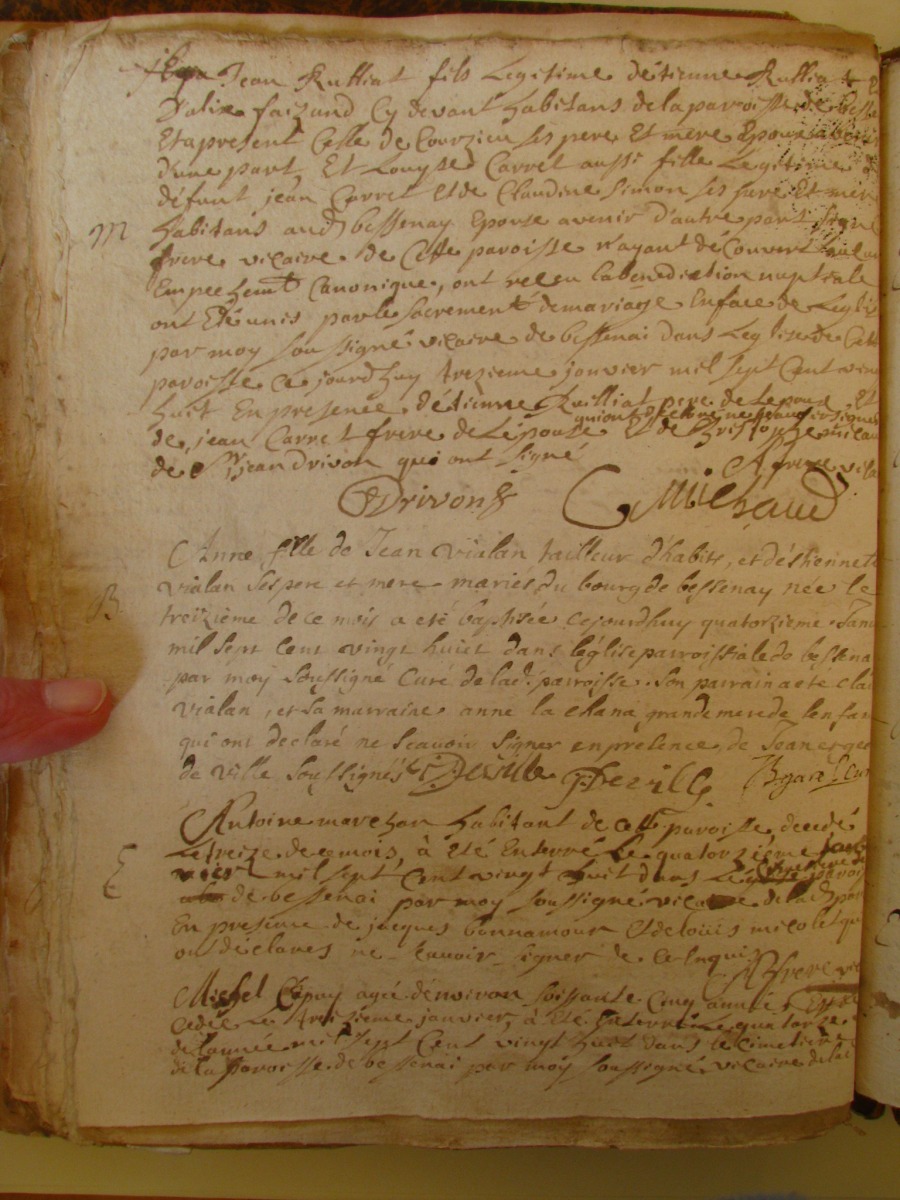 Jean Rulliat fils Legitime détienne Rulliat
D'alix faizand Cy devant habitans de la paroisse de
Et apresent Celle de Courzieu ses pere Et mere Epoux avenir
d'une part, Et Louyse Carret aussi fille Legitime
défunt jean Carret et de Claudine Simon ses pere Et mere
M
habitans aud bessenay Epouse avenir d'autre part
frere vicaire de Cette paroisse n'ayant découvert
Empechemt Canonique, ont receu la benediction nuptiale
ont Eté unis par le sacrement de mariage Enface de Legli
par moy soussigné vicaire de bessenai dans Leglise de Cette
paroisse Ce jourdhuy trezieme janvier mil sept Cent vin
huit En presence d'étienne Rulliat pere de Lepoux Et
de jean Carret frere de L'épouse Et de
de Sr jean Drivon qui ont signé
frere vica
Drivon
Michaud
Anne fille de Jean vialan tailleur d'habits, et déstiennet
vialan ses pere et mere mariés du bourg de bessenay née le
B
treizième de ce mois a eté baptisée cejourdhuy quatorzieme Janv
mil sept cent vingt huict dans léglise parroissiale de bessena
par moy soussigné Curé de lad. parroisse. son parrain a eté cla
vialan, et sa marraine anne la chana grande mere de lenfan
qui ont declaré ne scavoir signer en presence de Jean et
de ville soussignés Deville Deville
Cur
Antoine marchan habitant de cette paroisse, decedé
E
Le treize de ce mois, à Eté Enterré Le quatorzieme
mil sept Cent vingt huit dans
de bessenai par moy soussigné vicaire de lad par
En presence de jacques bonnamour Et de loüis micolet qui
ont déclarés ne scavoir signer de Ce Enquis
frere vic
Michel agé dénviron soissante Cinq année
Cedée Le treizieme janvier, à Eté Enterré Le quatorze
de lannée mil sept Cent vingt huit dans le Cimetiere
de la paroisse de bessenai par moy soussigné vicaire de la